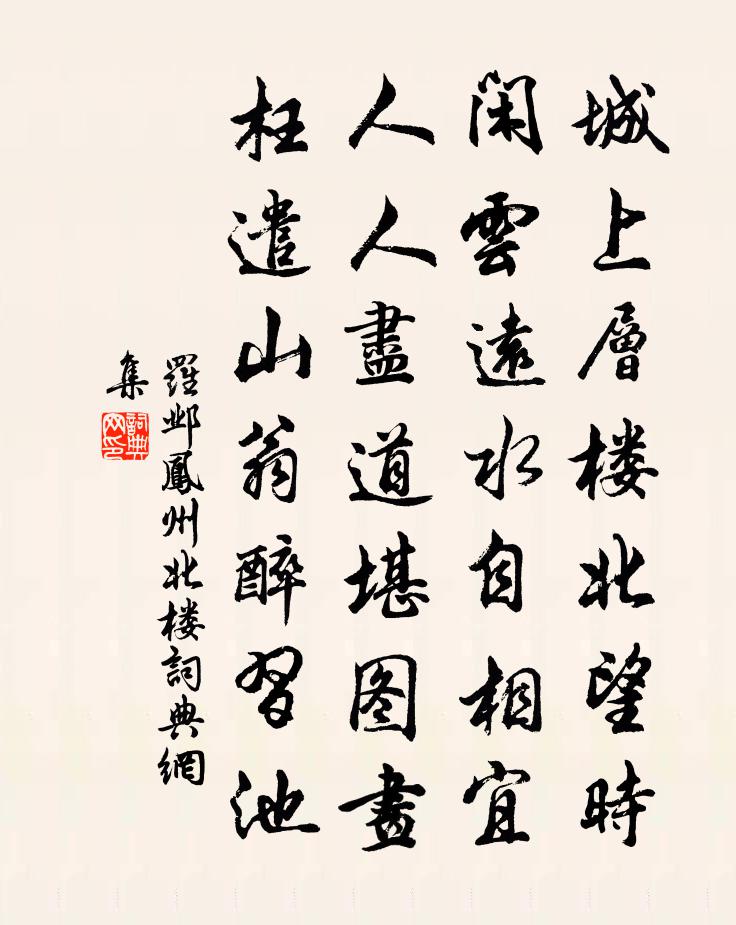 城上層楼北望時
閑雲遠水自相宜
人人盡道堪图畫
枉遣山翁醉習池
羅邺鳳州北楼詞典網
集
詞典网印